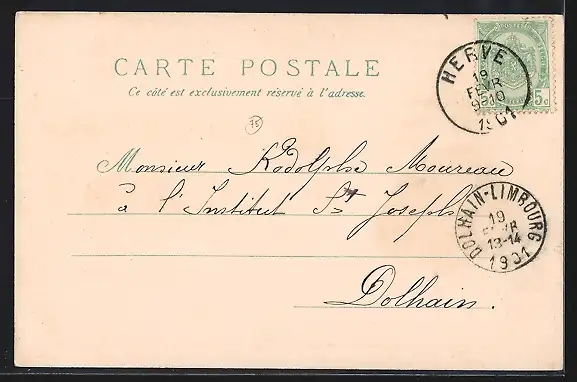 CARTE POSTALE
Ce côté est exclusivement réservé à l'adresse.
75
HERVE
19
FEVR
9-10
1901
5c
Monsieur Rodolphe Moureau
à l'Institut St Joseph
DOLHAIN-LIMBOURG
19
FEVR
13-14
1901
Dolhain.